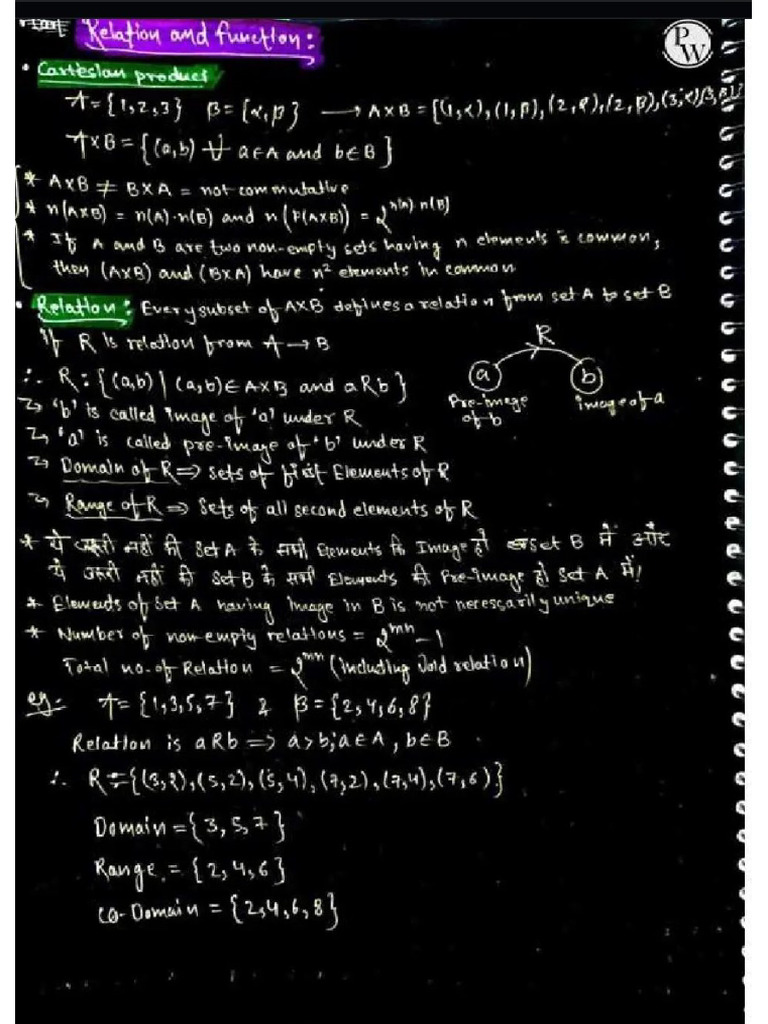 Relation and function:
PW
• Cartesian product
A = {1,2,3} B = {α,β} → A×B = {(1,α),(1,β),(2,α),(2,β),(3,α)(3,β)}
A×B = {(a,b) ∀ a∈A and b∈B}
* A×B ≠ B×A = not commutative
* n(A×B) = n(A)·n(B) and n(P(A×B)) = 2^n(A)·n(B)
* If A and B are two non-empty sets having n elements in common,
then (A×B) and (B×A) have n² elements in common
• Relation: Every subset of A×B defines a relation from set A to set B
If R is relation from A → B
R
∴ R: {(a,b) | (a,b)∈A×B and aRb}
a b
Pre-image of b
image of a
↳ 'b' is called image of 'a' under R
↳ 'a' is called pre-image of 'b' under R
↳ Domain of R ⇒ Sets of first Elements of R
↳ Range of R ⇒ Sets of all second elements of R
* ये जरूरी नहीं की Set A के सभी Elements कि Image हो Set B में और
ये जरूरी नहीं की Set B के सभी Elements की Pre-image हो Set A में!
* Elements of Set A having image in B is not necessarily unique
* Number of non-empty relations = 2^mn - 1
Total no. of Relation = 2^mn (including Void relation)
eg:- A = {1,3,5,7} & B = {2,4,6,8}
Relation is aRb ⇒ a>b; a∈A, b∈B
∴ R = {(3,2),(5,2),(5,4),(7,2),(7,4),(7,6)}
Domain = {3,5,7}
Range = {2,4,6}
co-Domain = {2,4,6,8}